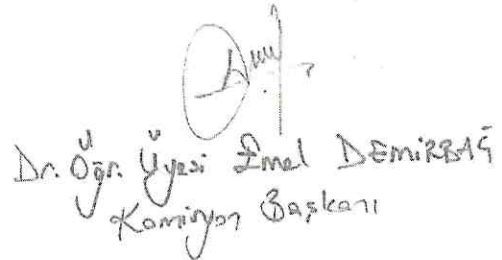 Dr. Öğr. Üyesi Emel DEMİRBAĞ
Komisyon Başkanı